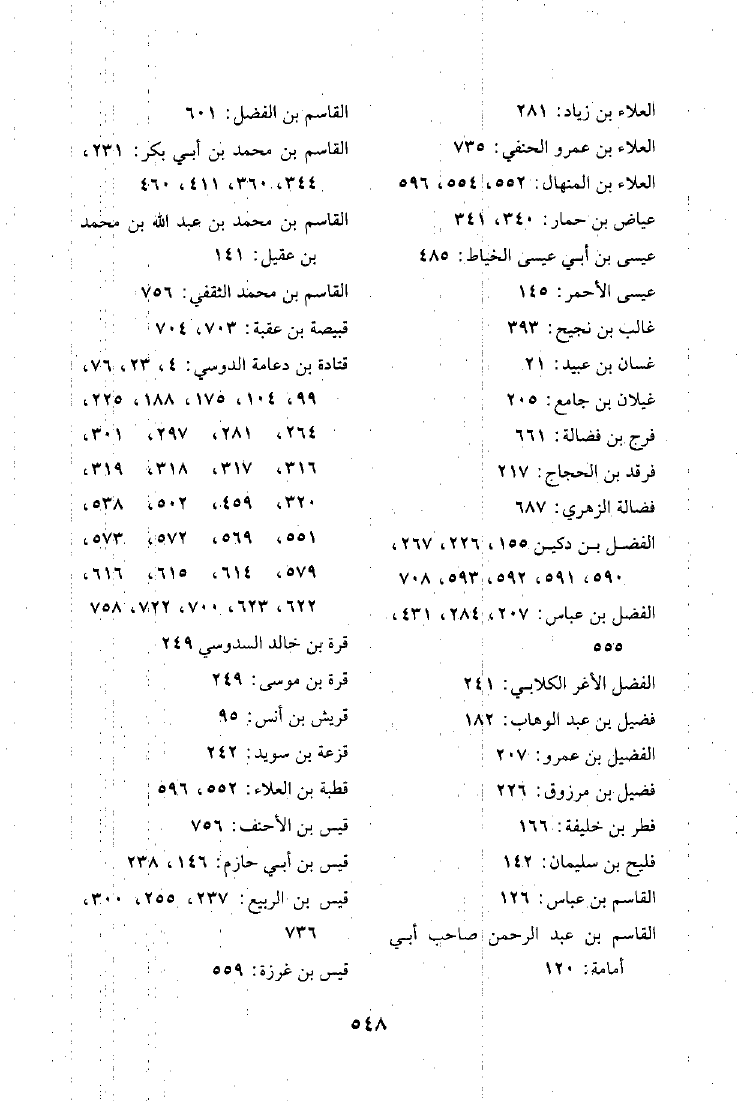 العلاء بن زياد: ٢٨١
العلاء بن عمرو الحنفي: ٧٣٥
العلاء بن المنهال: ٥٥٢، ٥٥٤، ٥٩٦
عياض بن حمار: ٣٤٠، ٣٤١
عيسى بن أبي عيسى الخياط: ٤٨٥
عيسى الأحمر: ١٤٥
غالب بن نجيح: ٣٩٣
غسان بن عبيد: ٢١
غيلان بن جامع: ٢٠٥
فرج بن فضالة: ٦٦١
فرقد بن الحجاج: ٢١٧
فضالة الزهري: ٦٨٧
الفضل بن دكين ١٥٥، ٢٢٦، ٢٦٧،
٥٩٠، ٥٩١، ٥٩٢، ٥٩٣، ٧٠٨
الفضل بن عباس: ٢٠٧، ٢٨٤، ٤٣١،
٥٥٥
الفضل الأغر الكلابي: ٢٤١
فضيل بن عبد الوهاب: ١٨٢
الفضيل بن عمرو: ٢٠٧
فضيل بن مرزوق: ٢٢٦
فطر بن خليفة: ١٦٦
فليح بن سليمان: ١٤٢
القاسم بن عباس: ١٢٦
القاسم بن عبد الرحمن صاحب أبي
أمامة: ١٢٠
القاسم بن الفضل: ٦٠١
القاسم بن محمد بن أبي بكر: ٢٣١،
٣٤٤، ٣٦٠، ٤١١، ٤٦٠
القاسم بن محمد بن عبد الله بن محمد
بن عقيل: ١٤١
القاسم بن محمد الثقفي: ٧٥٦
قبيصة بن عقبة: ٧٠٣، ٧٠٤
قتادة بن دعامة الدوسي: ٤، ٢٣، ٧٦،
٩٩، ١٠٤، ١٧٥، ١٨٨، ٢٢٥،
٢٦٤، ٢٨١، ٢٩٧، ٣٠١،
٣١٦، ٣١٧، ٣١٨، ٣١٩،
٣٢٠، ٤٥٩، ٥٠٢، ٥٣٨،
٥٥١، ٥٦٩، ٥٧٢، ٥٧٣،
٥٧٩، ٦١٤، ٦١٥، ٦١٦،
٦٢٢، ٦٢٣، ٧٠٠، ٧٢٢، ٧٥٨
قرة بن خالد السدوسي ٢٤٩
قرة بن موسى: ٢٤٩
قريش بن أنس: ٩٥
قزعة بن سويد: ٢٤٢
قطبة بن العلاء: ٥٥٢، ٥٩٦
قيس بن الأحنف: ٧٥٦
قيس بن أبي حازم: ١٤٦، ٢٣٨
قيس بن الربيع: ٢٣٧، ٢٥٥، ٣٠٠،
٧٣٦
قيس بن غرزة: ٥٥٩
٥٤٨